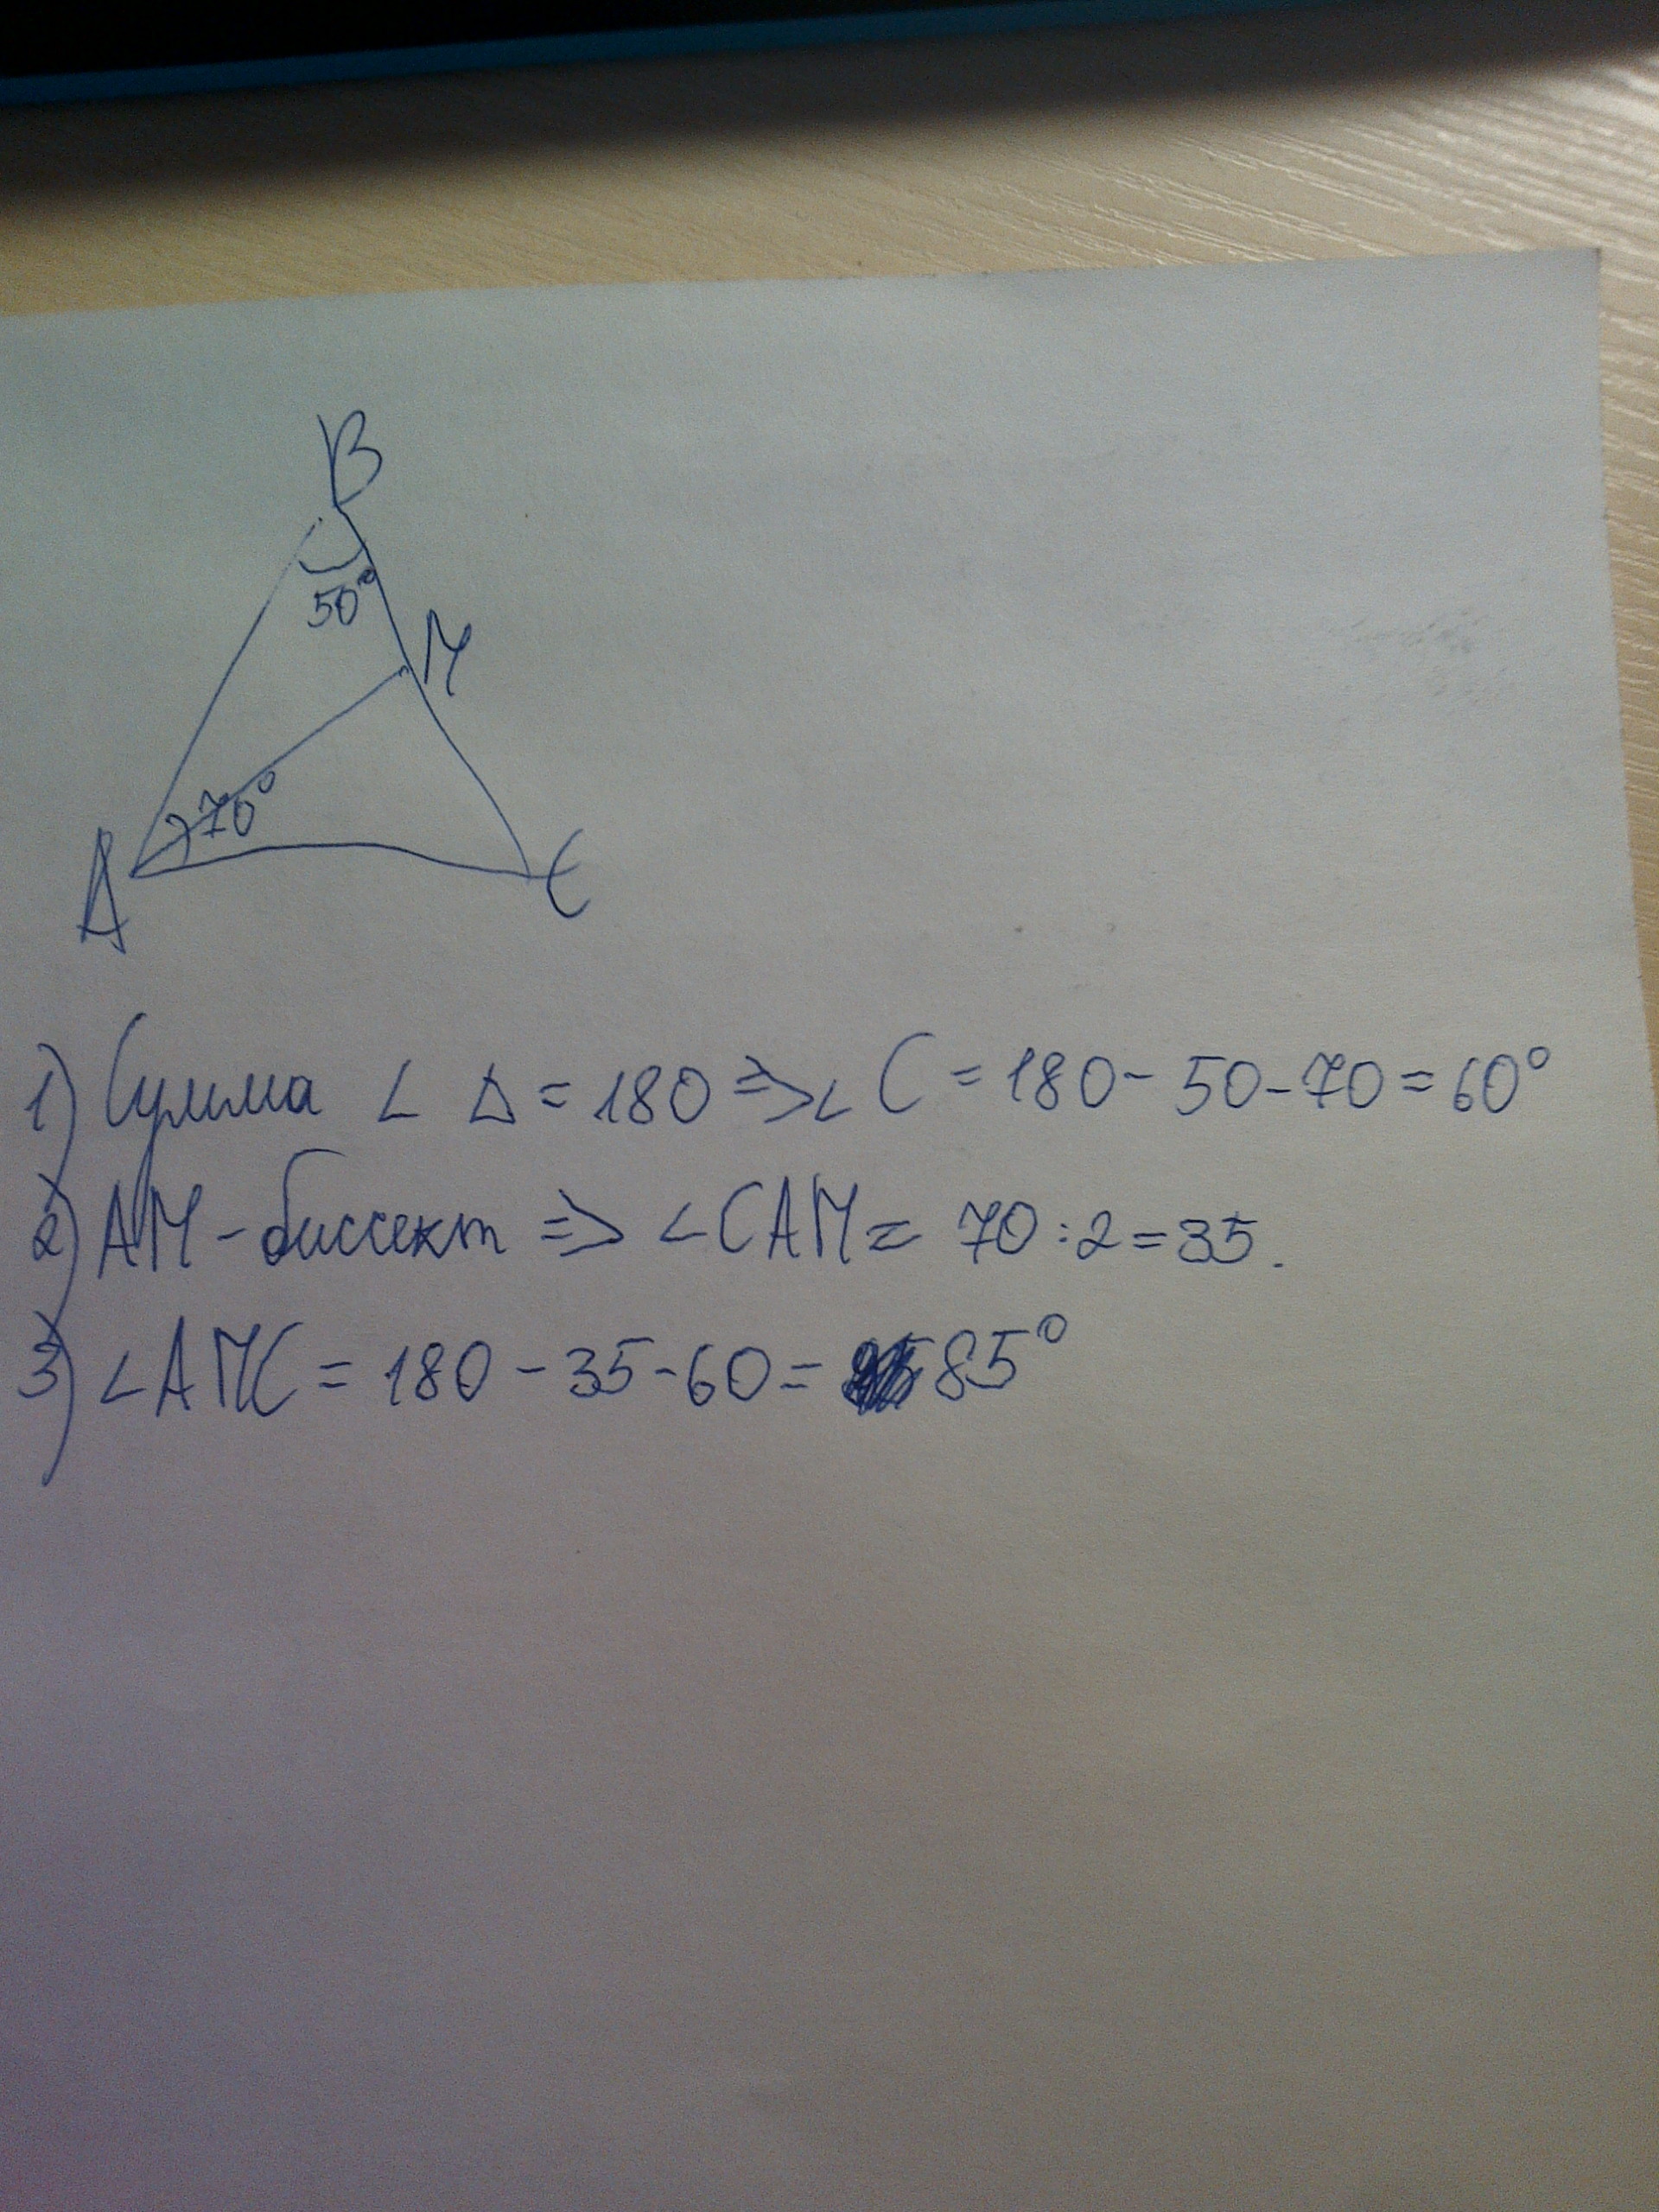 B
50°
M
70°
A
C
1) Сумма ∠ Δ = 180 => ∠ C = 180 - 50 - 70 = 60°
2) AM - биссект => ∠CAM = 70 : 2 = 35.
3) ∠AMC = 180 - 35 - 60 = 85°